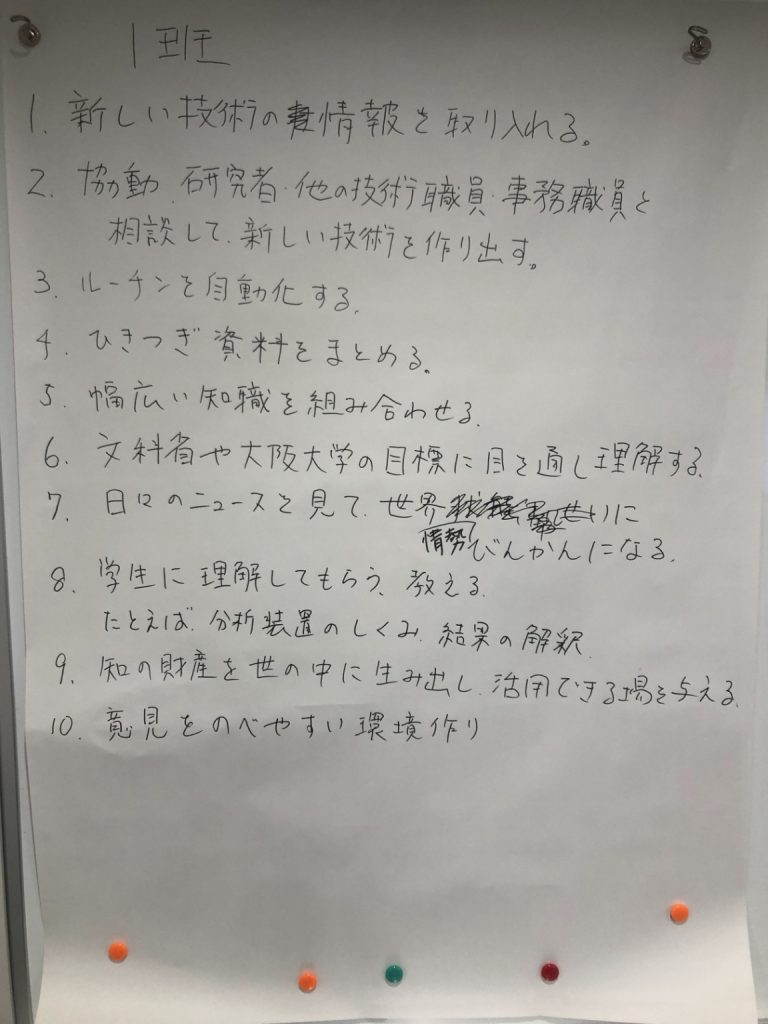 1班
1. 新しい技術の情報を取り入れる。
2. 協動、研究者・他の技術職員・事務職員と
相談して、新しい技術を作り出す。
3. ルーチンを自動化する。
4. ひきつぎ資料をまとめる。
5. 幅広い知職を組み合わせる。
6. 文科省や大阪大学の目標に目を通し理解する。
7. 日々のニュースを見て、世界情勢に
びんかんになる。
8. 学生に理解してもらう、教える。
たとえば、分析装置のしくみ、結果の解釈。
9. 知の財産を世の中に生み出し、活用できる場を与える。
10. 意見をのべやすい環境作り